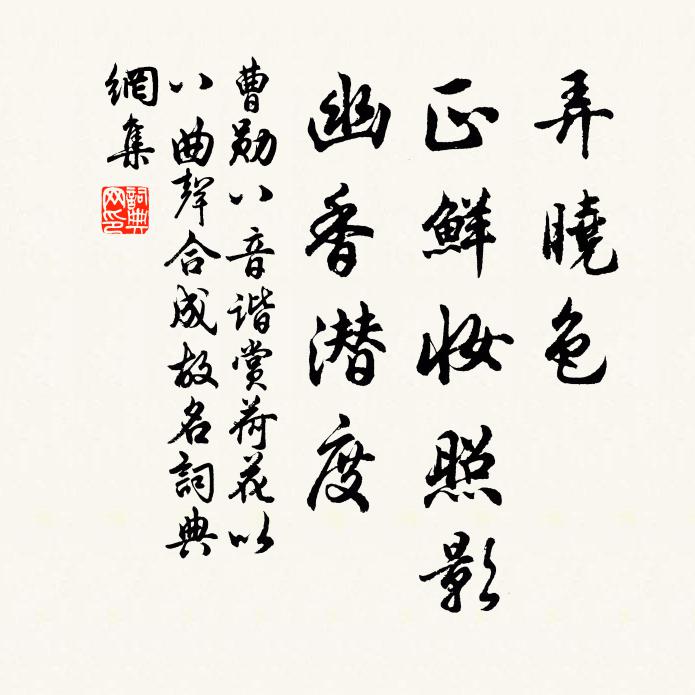 弄曉色
正鮮妝照影
幽香潜度
曹勋八音谐赏荷花以
八曲聲合成故名詞典
網集
詞典
网印